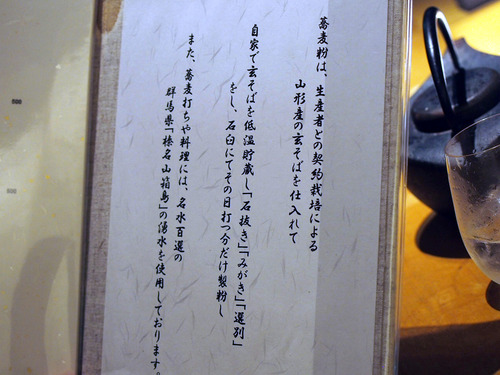 蕎麦粉は、生産者との契約栽培による
山形産の玄そばを仕入れて
自家で玄そばを低温貯蔵し「石抜き」「みがき」「選別」
をし、石臼にてその日打つ分だけ製粉し
また、蕎麦打ちや料理には、名水百選の
群馬県「榛名山箱島」の湧水を使用しております。